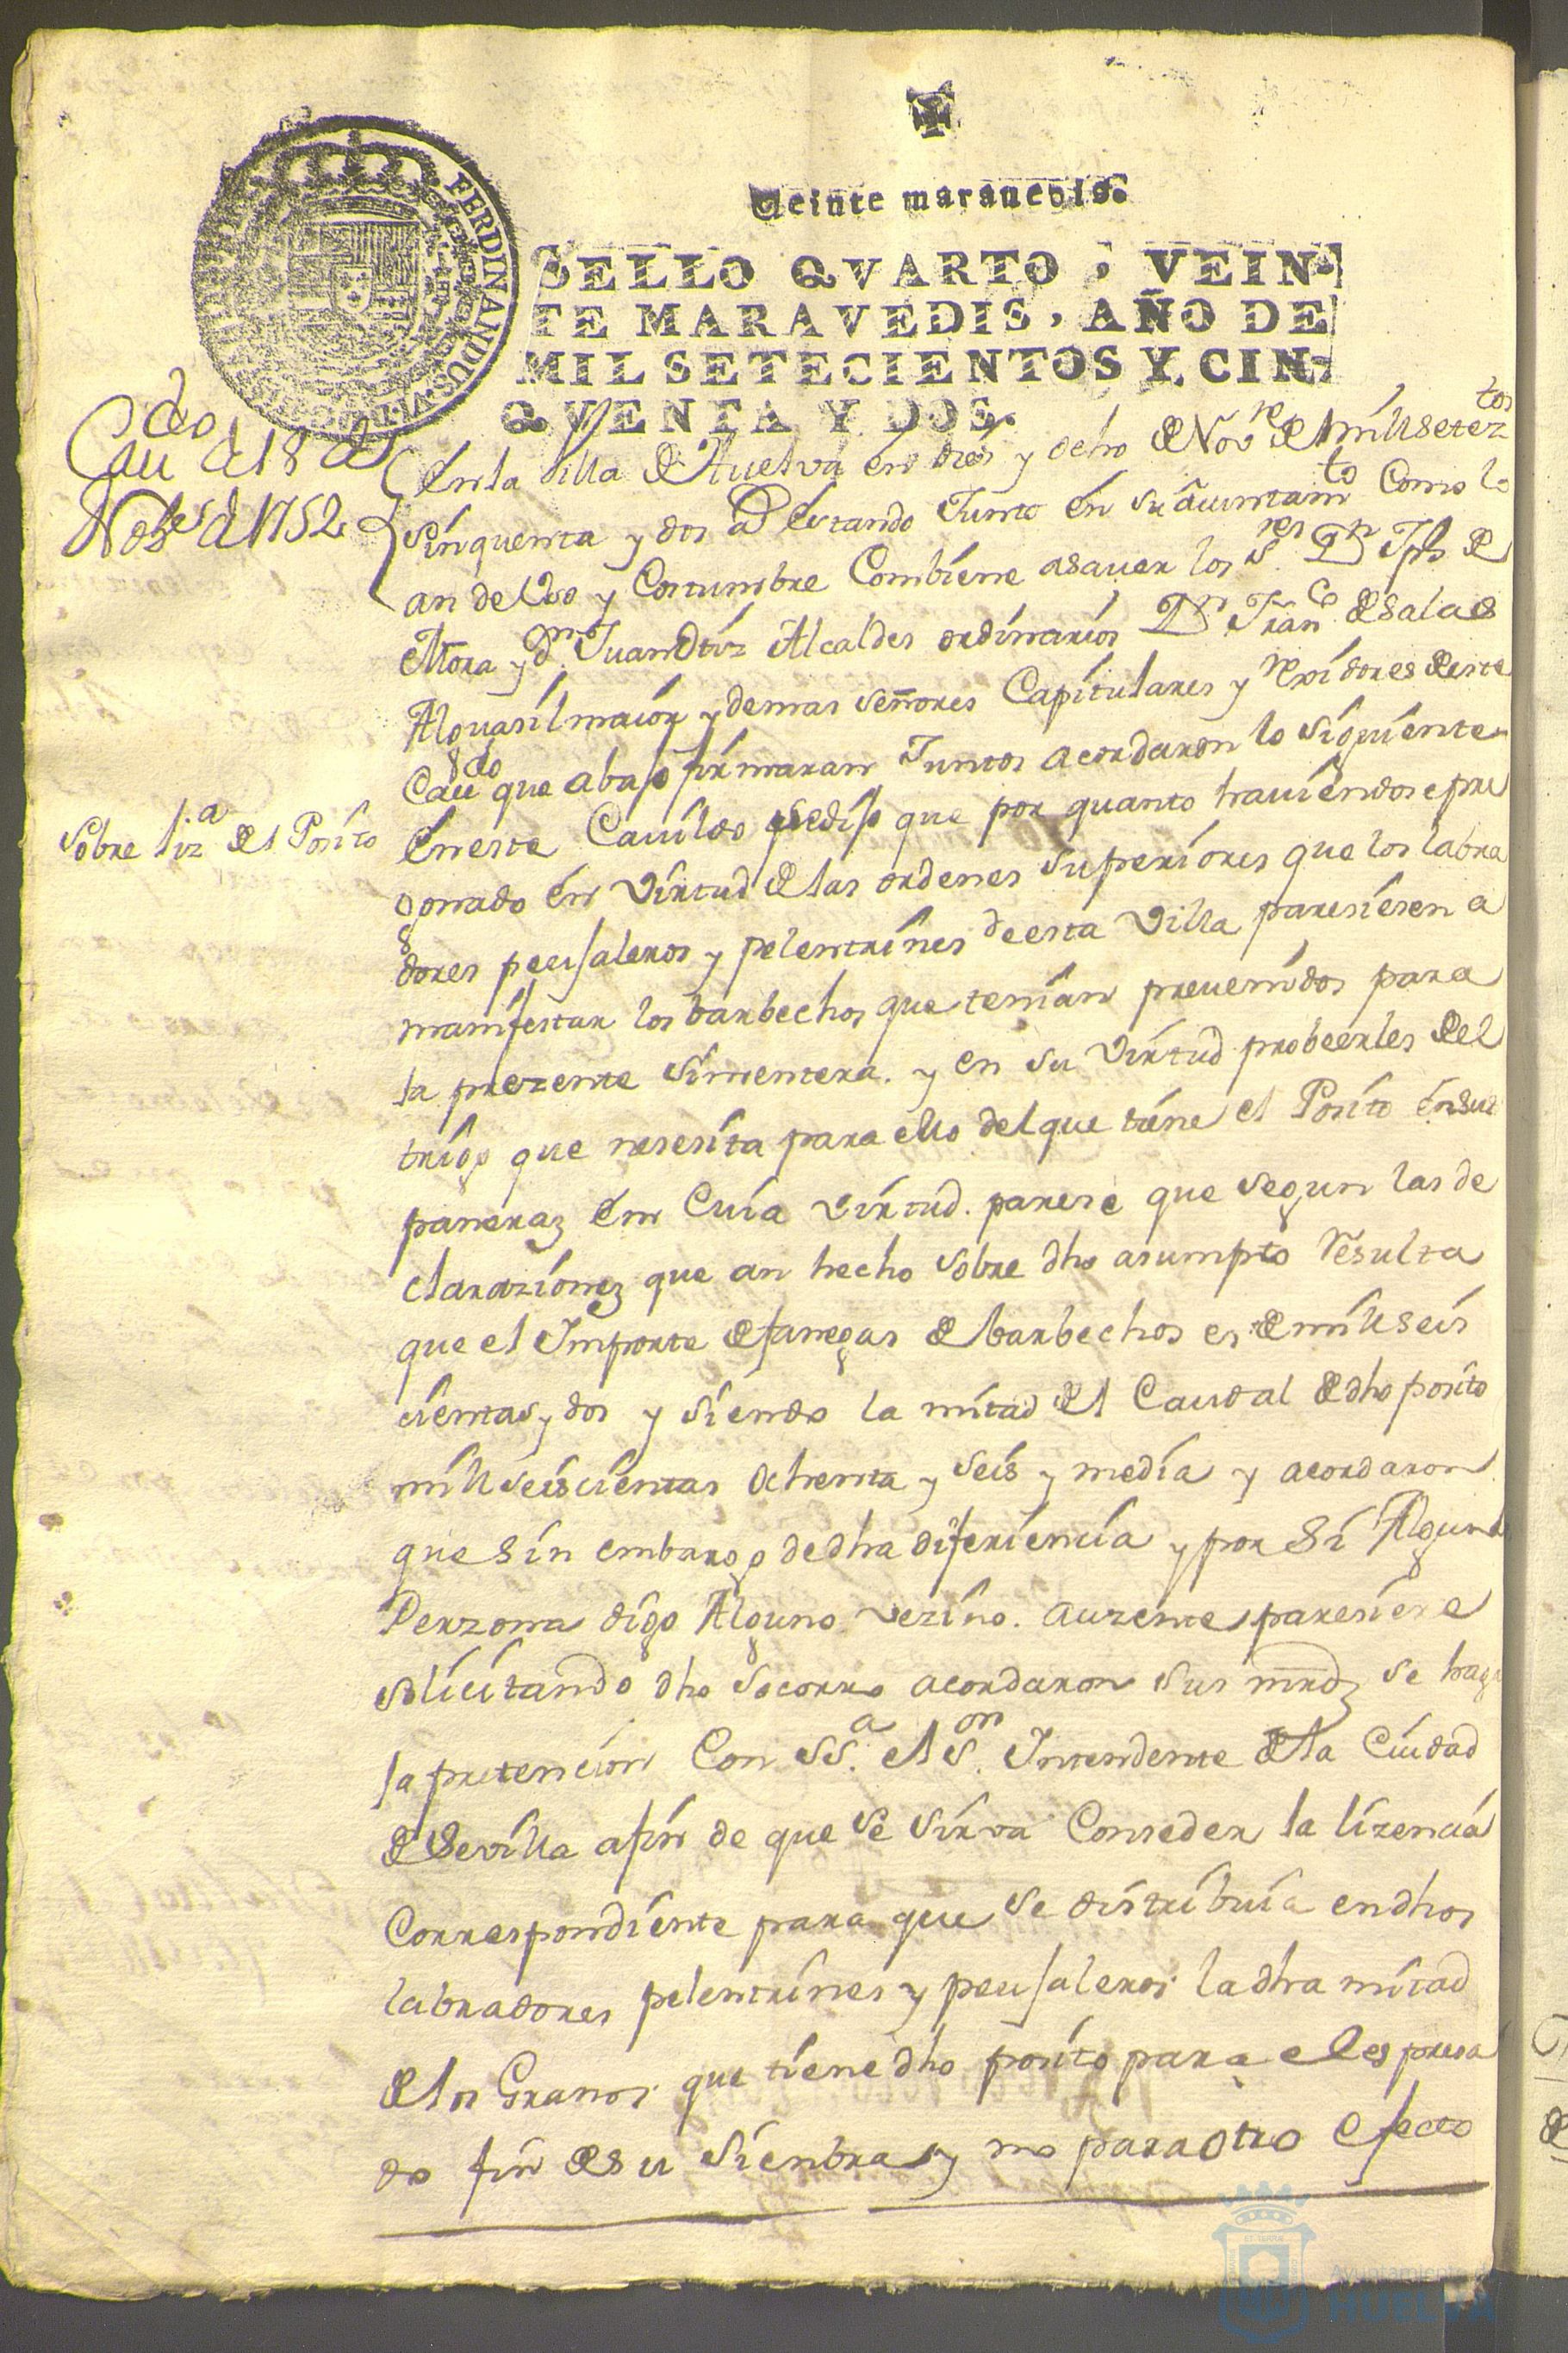 Veinte maravedis.
SELLO QVARTO, VEIN-
TE MARAVEDIS, AÑO DE
MIL SETECIENTOS Y CIN-
QVENTA Y DOS.
FERDINANDUS VI D G
Cau.do de 18 de
Nobre de 1752
En la villa de Huelva en dies y ocho de Nov.re de mill setez.tos
sinquenta y dos a.s estando Junto en su aiuntam.to Como lo
an de Uso y Costumbre Combiene asauer los S.res D.n Jph de
Mora y D.n Juan Ortiz Alcaldes ordinarios D.n Fran.co de Salas
Alguasil maior y demas señores Capitulares y Rexidores de este
Cau.do que abajo firmaran Juntos acordaron lo siguiente
Sobre liz.a del Posito
En este Cauildo se dijo que por quanto hauiendose pre
gonado en Virtud de las ordenes superiores que los labra
dores peujaleros y pelentrines de esta Villa paresiesen a
manifestar los barbechos que tenian preuenidos para
la prezente simentera. y en su Virtud probeerles del
trigo que nesesita para ello del que tiene el Posito en sus
paneraz en Cuia virtud. parese que segun las de
claraziones que an hecho sobre dho asumpto Resulta
que el Importe de fanegas de barbechos es de mill seis
cientas y dos y siendo la mitad del Caudal de dho posito
mill seiscientas ochenta y seis y media y acordaron
que sin embargo de dha diferiencia y por si Alguna
Perzona digo Alguno vezino. auzente paresiere
solicitando dho socorro acordaron sus mrdz se haga
la pretencion Con SS.a el S.or Intendente de la Ciudad
de Sevilla a fin de que se sirva Conseder la lizencia
Correspondiente para que se distribuia en dhos
labradores pelentrines y peujaleros la dha mitad
de los Granos que tiene dho posito para el espresa
do fin de su siembra y no para otro efecto
Ayuntamiento de
HUELVA